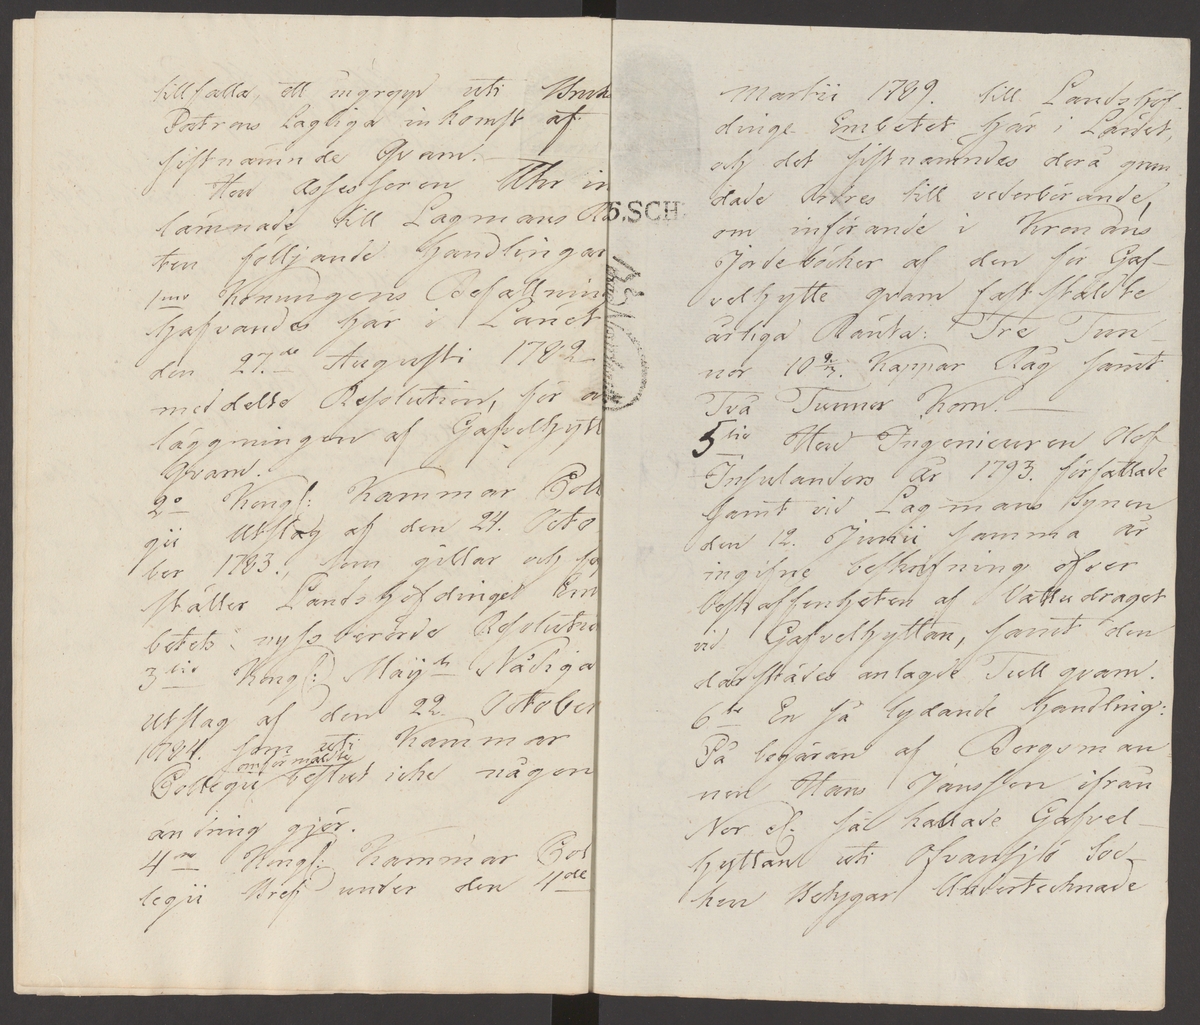 tillfalla, ett ingrepp uti Bruks
Patrons Lagliga inkomst af
sistnämnde Qvarn.
Herr Assessoren Uhr in
lämnade till Lagmans Rä
ten följande Handlingar
1mo Konungens Befallnin
hafvandes här i Länet
den 27.de Augusti 1782
meddelte Resolution, för a
läggningen af Gafvelhytt
Qvarn.
2o Kongl: Kammar Coll
gii Utslag af den 24. Octo
ber 1783., som gillar och fa
ställer Landshöfdinge Em
betets nyssberörde Resolutio
3tio Kongl: Maij:ts Nådiga
Utslag af den 22. October
1784. som uti Kammar
Collegii omförmälte beslut icke någon
ändring gjör.
4to Kongl: Kammar Col
legii Bref under den 4de
Martii 1789. till Landshöf-
dinge Embetet här i Länet,
och det sistnämndes derå grun
dade Ordres till vederbörande,
om införande i Kronans
Jordeböcker af den för Gaf-
velhytte qvarn fastställdte
årliga Ränta: Tre Tun-
nor 10 Kappar Råg samt
Två Tunnor Korn.
5tio Herr Ingenieuren Olof
Insulanders År 1793. författade
samt vid Lagmans Synen
den 12. Junii samma år
ingifne beskrifning öfver
beskaffenheten af Vattudraget
vid Gafvelhyttan, samt den
därstädes anlagde Tull qvarn.
6te En så lydande Handling:
På begäran af Bergsman-
nen Hans Jansson ifrån
Nor så kallade Gafvel-
hyttan uti Ofvansjö Soc-
ken Betygar Undertecknade
5.SCH